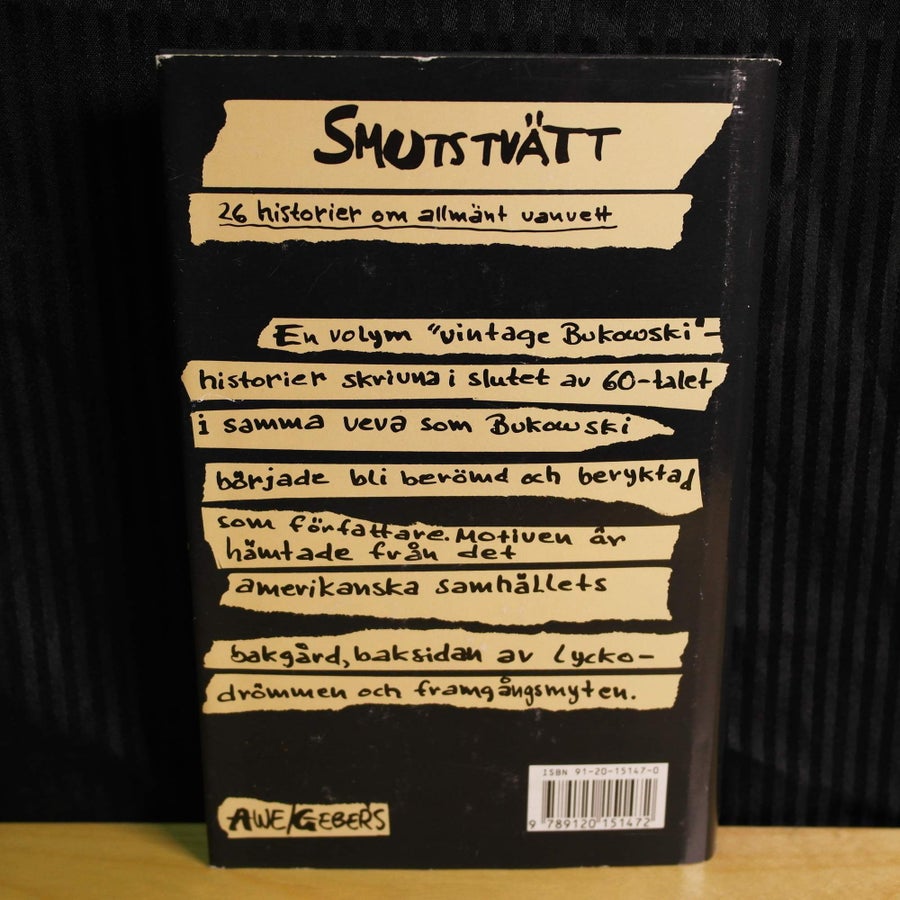 SMUTSTVÄTT
26 historier om allmänt vanvett
En volym "vintage Bukowski"-
historier skrivna i slutet av 60-talet
i samma veva som Bukowski
började bli berömd och beryktad
som författare. Motiven är
hämtade från det
amerikanska samhällets
bakgård, baksidan av lycko-
drömmen och framgångsmyten.
ISBN 91-20-15147-0
9 789120 151472
AWE/GEBERS